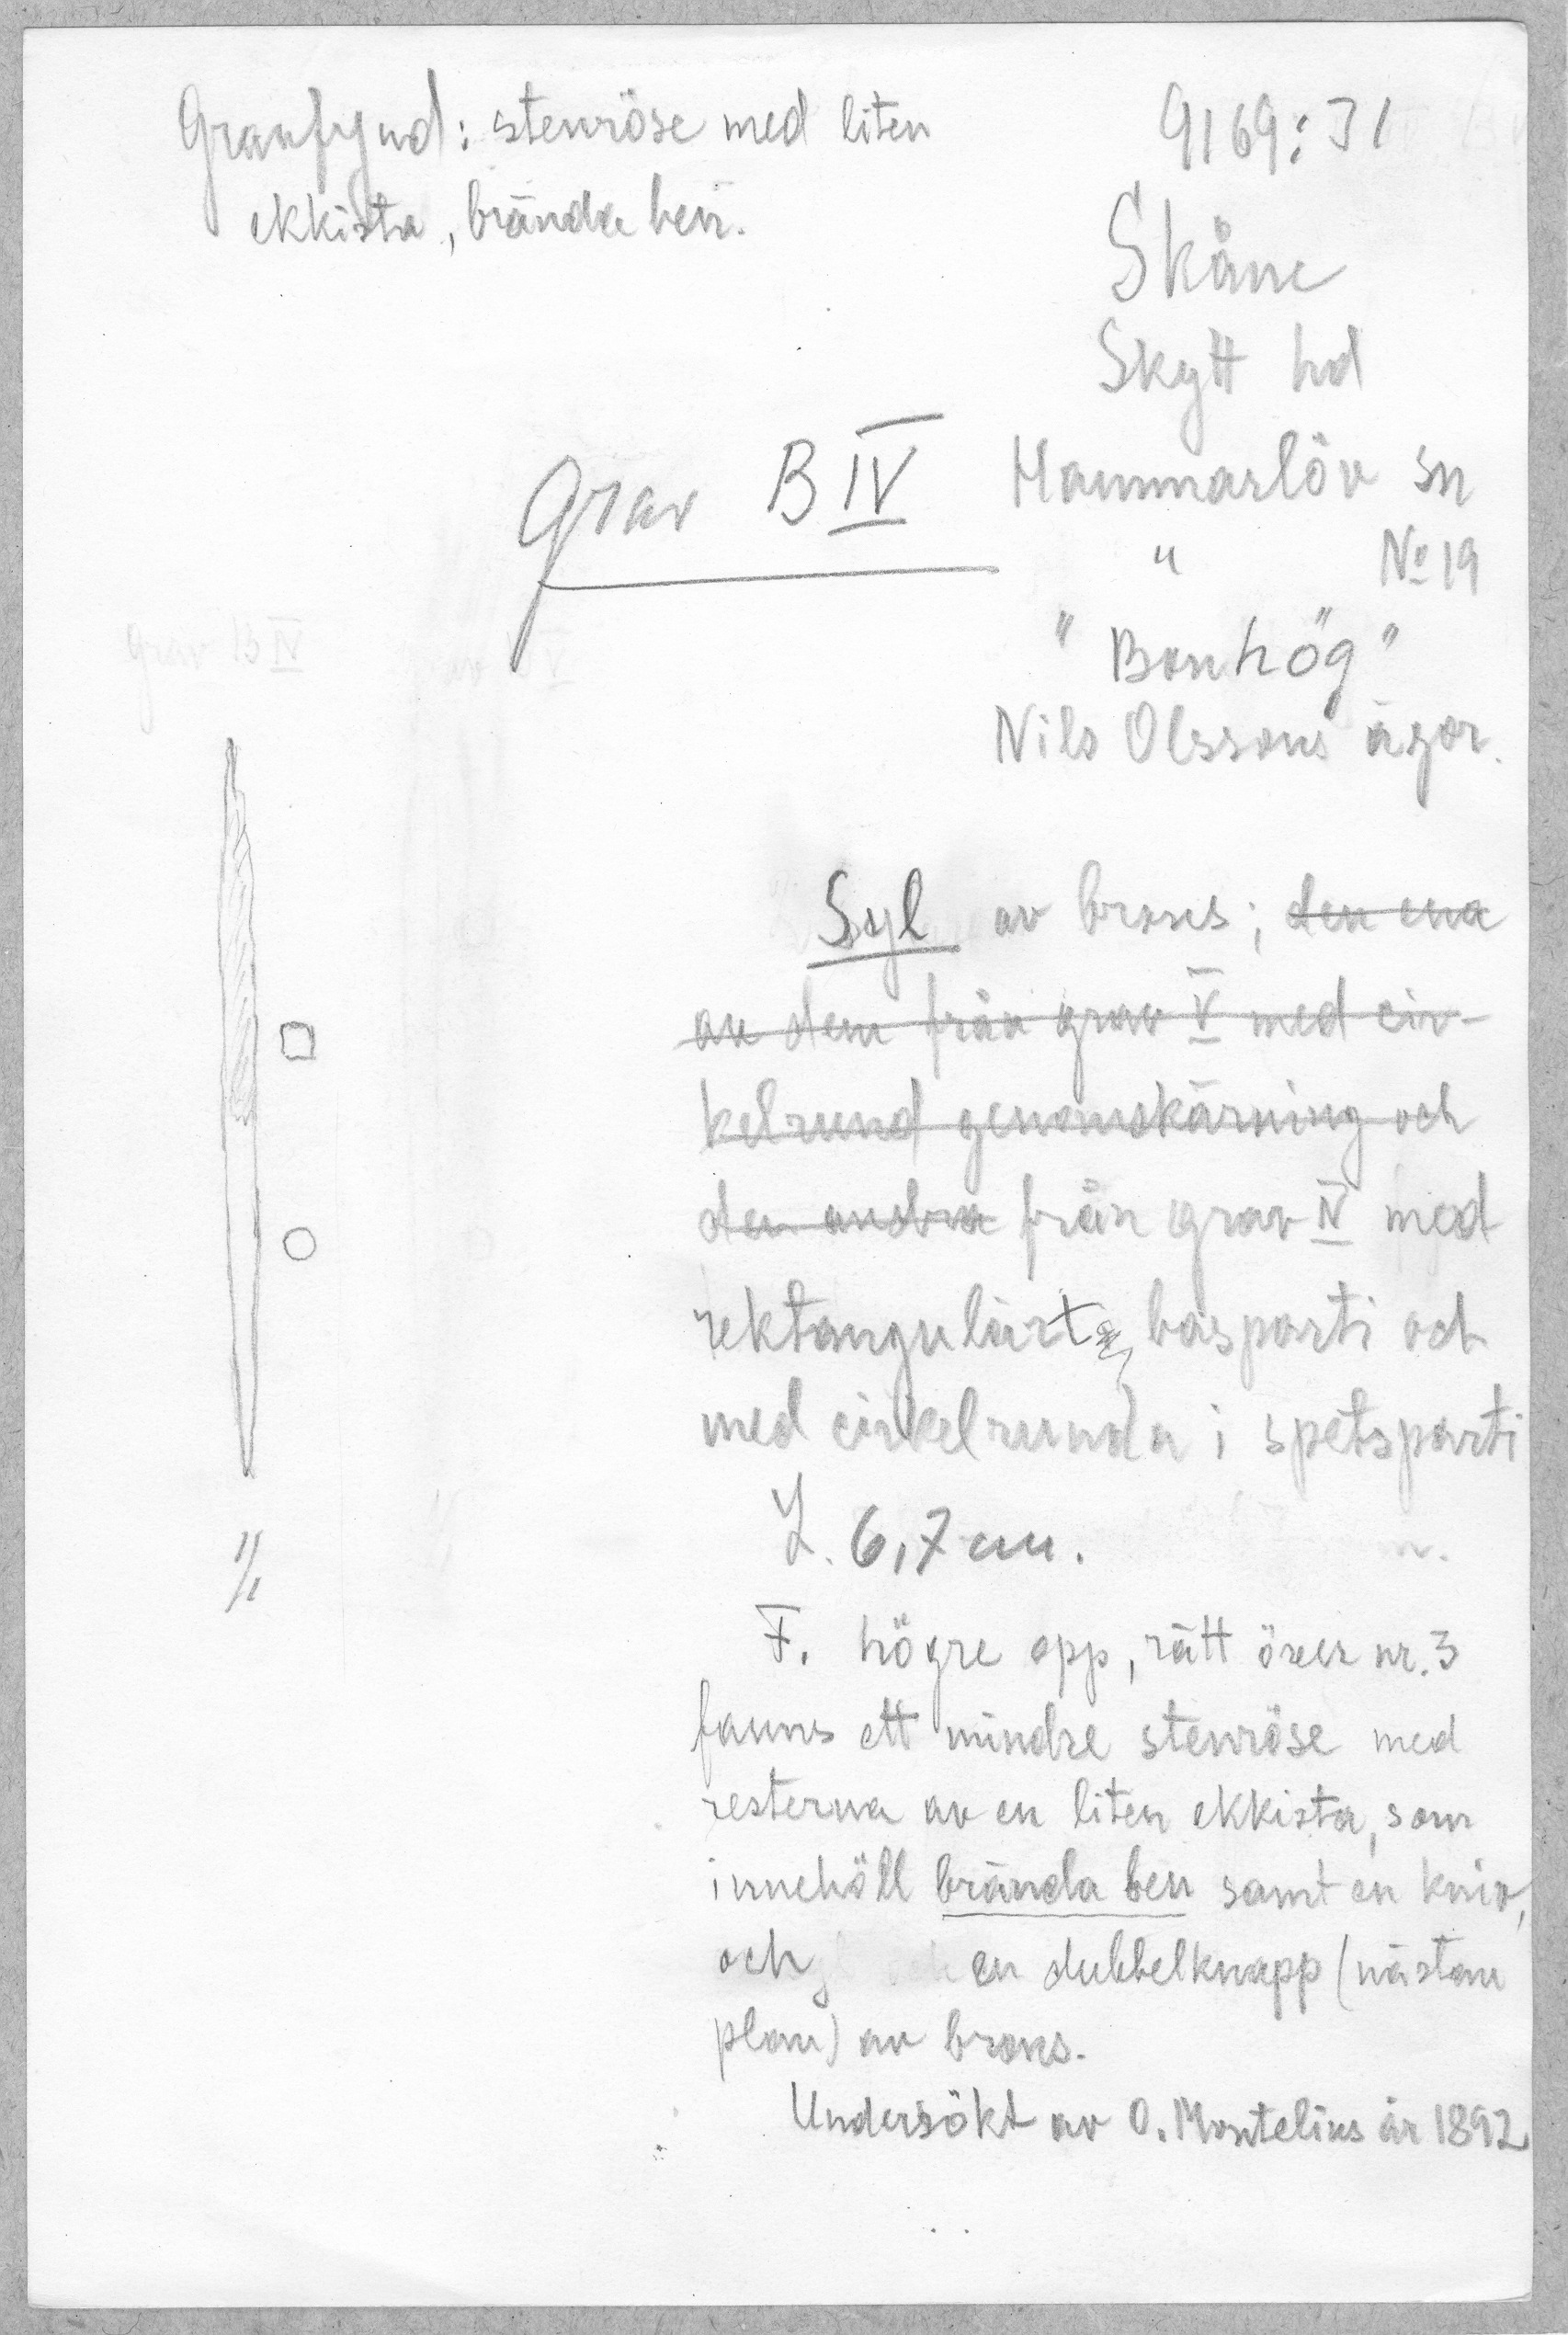 Gravfynd: stenröse med liten
ekkista, brända ben.
9169:31
Skåne
Skytt hd
Grav B IV
Hammarlöv sn
" No 19
"Bonhög"
Nils Olssons ägor.
Grav B IV
Syl av brons; den ena
av dem från grav V med cir-
kelrund genomskärning och
den andra från grav IV med
rektangulärt basparti och
med cirkelrunda i spetsparti
L. 6,7 cm.
1/1
F. högre opp, rätt över nr. 3
fanns ett mindre stenröse med
resterna av en liten ekkista, som
innehöll brända ben samt en kniv,
och en dubbelknapp (nästan
plan) av brons.
Undersökt av O. Montelius år 1892